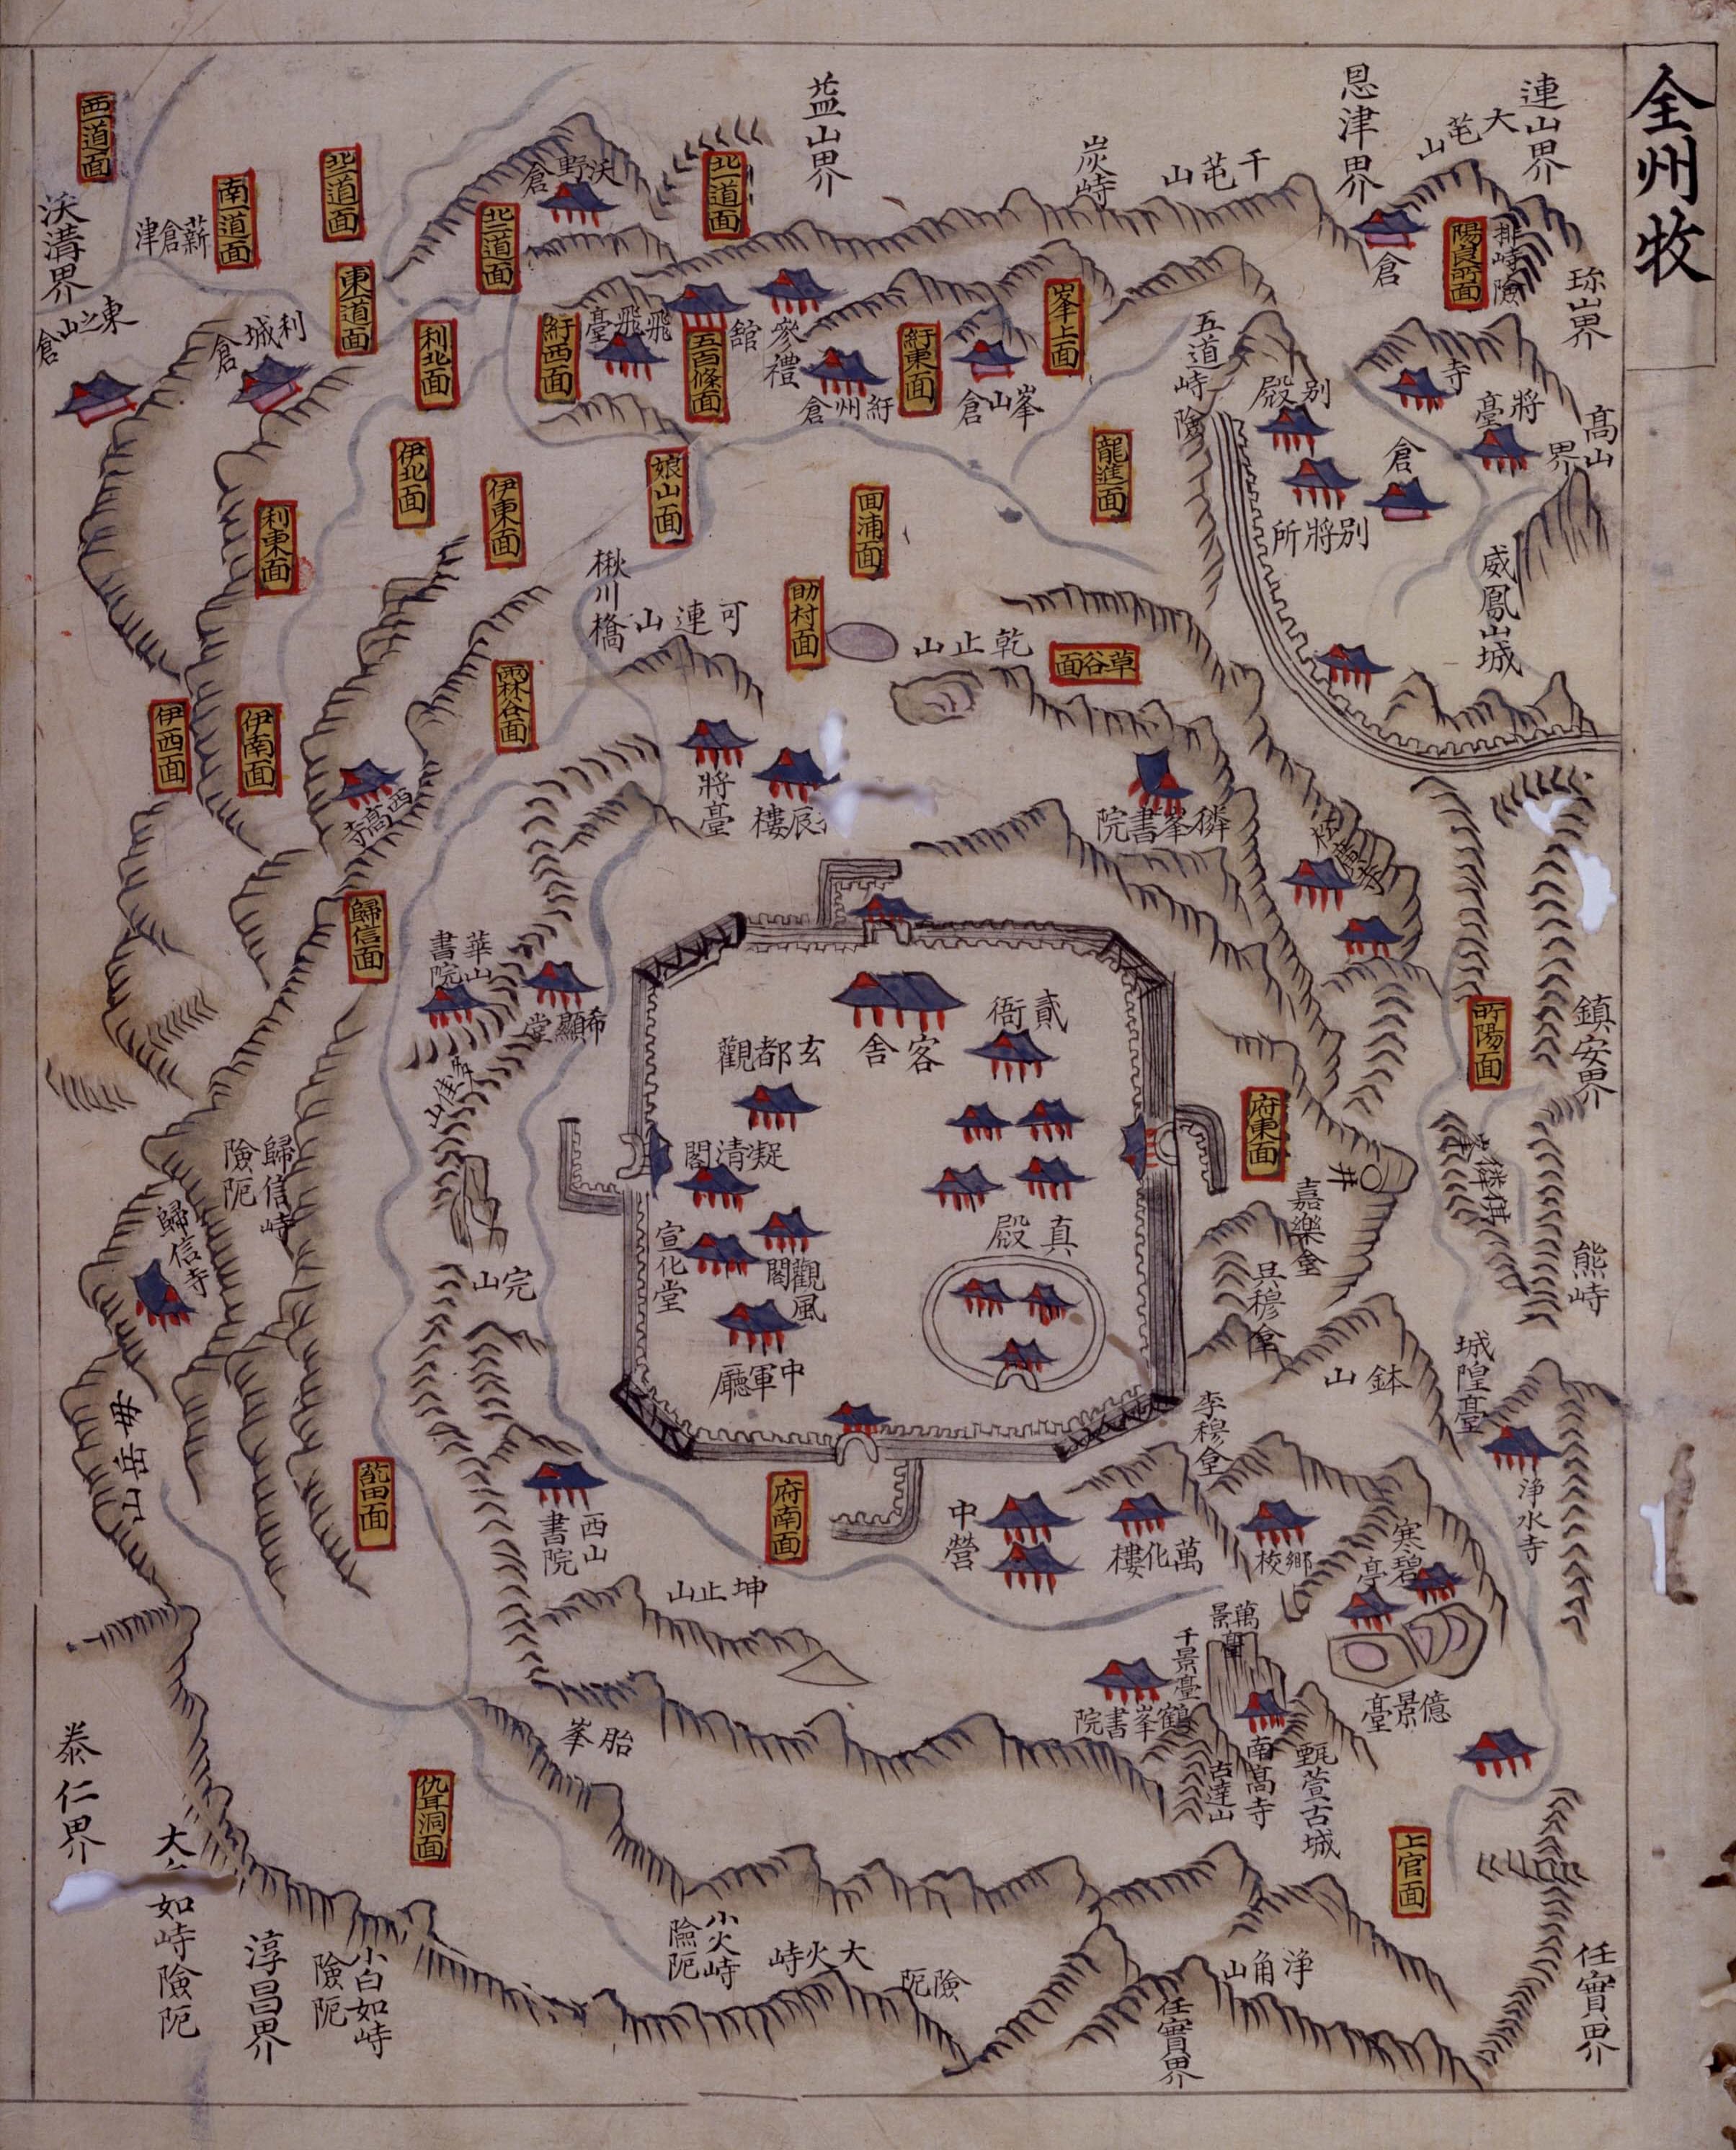 全州牧
連山界
大芚山
恩津界
千芚山
炭峙
益山界
倉
陽良所面
排峙險
珎山界
高山界
寺
將臺
別殿
倉
別將所
威鳳山城
五道峙險
峯上面
峯山倉
紆東面
紆州倉
參禮
舘
五百條面
飛飛臺
紆西面
沃野倉
北一道面
北二道面
南一道面
東一道面
西一道面
薪倉津
沃溝界
東之山倉
利城倉
利北面
利東面
伊北面
伊東面
伊西面
伊南面
娘山面
回浦面
龍進面
助村面
草谷面
乾止山
可連山
楸川橋
雨林谷面
西高寺
將臺
拱辰樓
獜峯書院
歸信面
華山書院
希顯堂
貳衙
客舍
玄都觀
凝清閣
宣化堂
觀風閣
中軍廳
真殿
府東面
井
所陽面
鎮安界
熊峙
嘉樂堂
城隍臺
鉢山
李穆臺
淨水寺
完山
歸信峙險阨
歸信寺
母岳山
府南面
中營
萬化樓
鄉校
寒碧亭
西山書院
坤止山
萬景臺
千景臺
億景臺
鶴峯書院
南高寺
古達山
甄萱古城
胎峯
仇耳洞面
上官面
泰仁界
淳昌界
小白如峙險阨
小火峙險阨
大火峙
險阨
淨角山
任實界
任實界